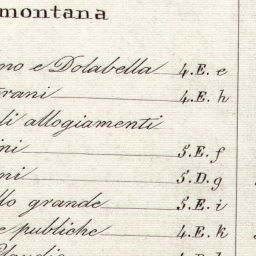 montana
no e Dolabella 4.E. e
rani 4.E. h
li allogiamenti
ni 5.E. f
ni 5.D. g
llo grande 5.E. i
e publiche 4.E. k